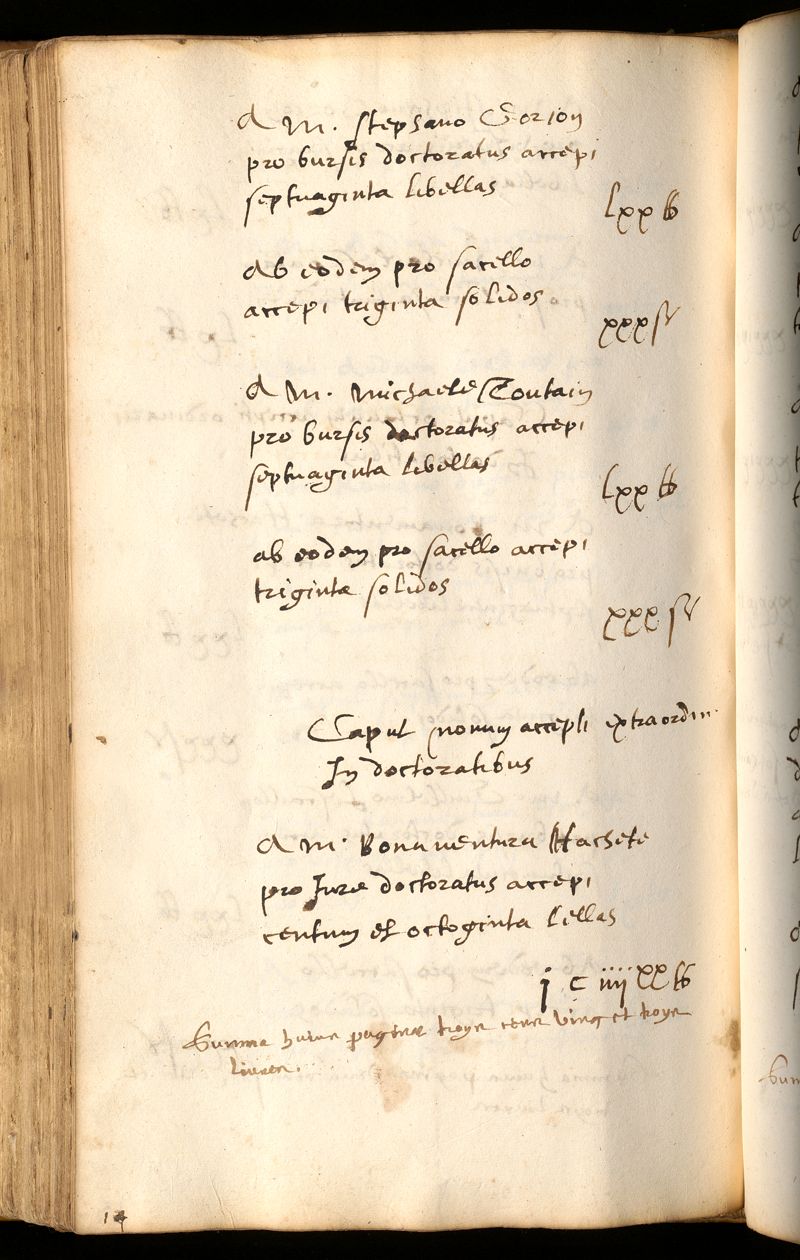 A M. stephano Gorion
pro bursis doctoratus accepi
septuaginta libellas
lxx lb
Ab eodem pro sacello
accepi triginta solidos
xxx s
A M. Michaele Toutain
pro bursis doctoratus accepi
septuaginta libellas
lxx lb
ab eodem pro sacello accepi
triginta solidos
xxx s
Caput nonum accepti extraordin
In doctoratibus
A M. Bonaventura Hachete
pro Jure doctoratus accepi
centum et octoginta lellas
j c iiii xx lb
Summa huius paginae troys cens vingt et troys
livres.
14